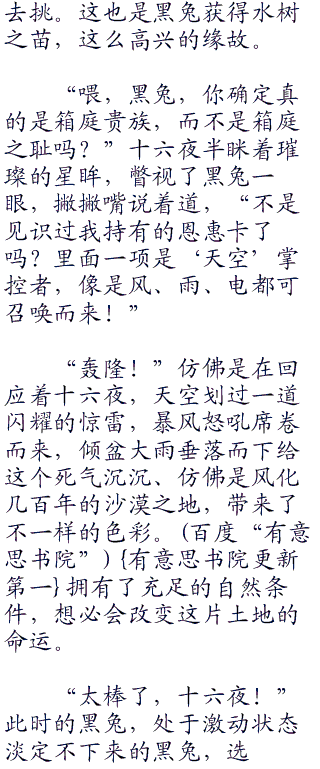 去挑。这也是黑兔获得水树
之苗，这么高兴的缘故。
“喂，黑兔，你确定真
的是箱庭贵族，而不是箱庭
之耻吗？”十六夜半眯着璀
璨的星眸，瞥视了黑兔一
眼，撇撇嘴说着道，“不是
见识过我持有的恩惠卡了
吗？里面一项是‘天空’掌
控者，像是风、雨、电都可
召唤而来！”
“轰隆！”仿佛是在回
应着十六夜，天空划过一道
闪耀的惊雷，暴风怒吼席卷
而来，倾盆大雨垂落而下给
这个死气沉沉、仿佛是风化
几百年的沙漠之地，带来了
不一样的色彩。(百度“有意
思书院”) {有意思书院更新
第一} 拥有了充足的自然条
件，想必会改变这片土地的
命运。
“太棒了，十六夜！”
此时的黑兔，处于激动状态
淡定不下来的黑兔，选